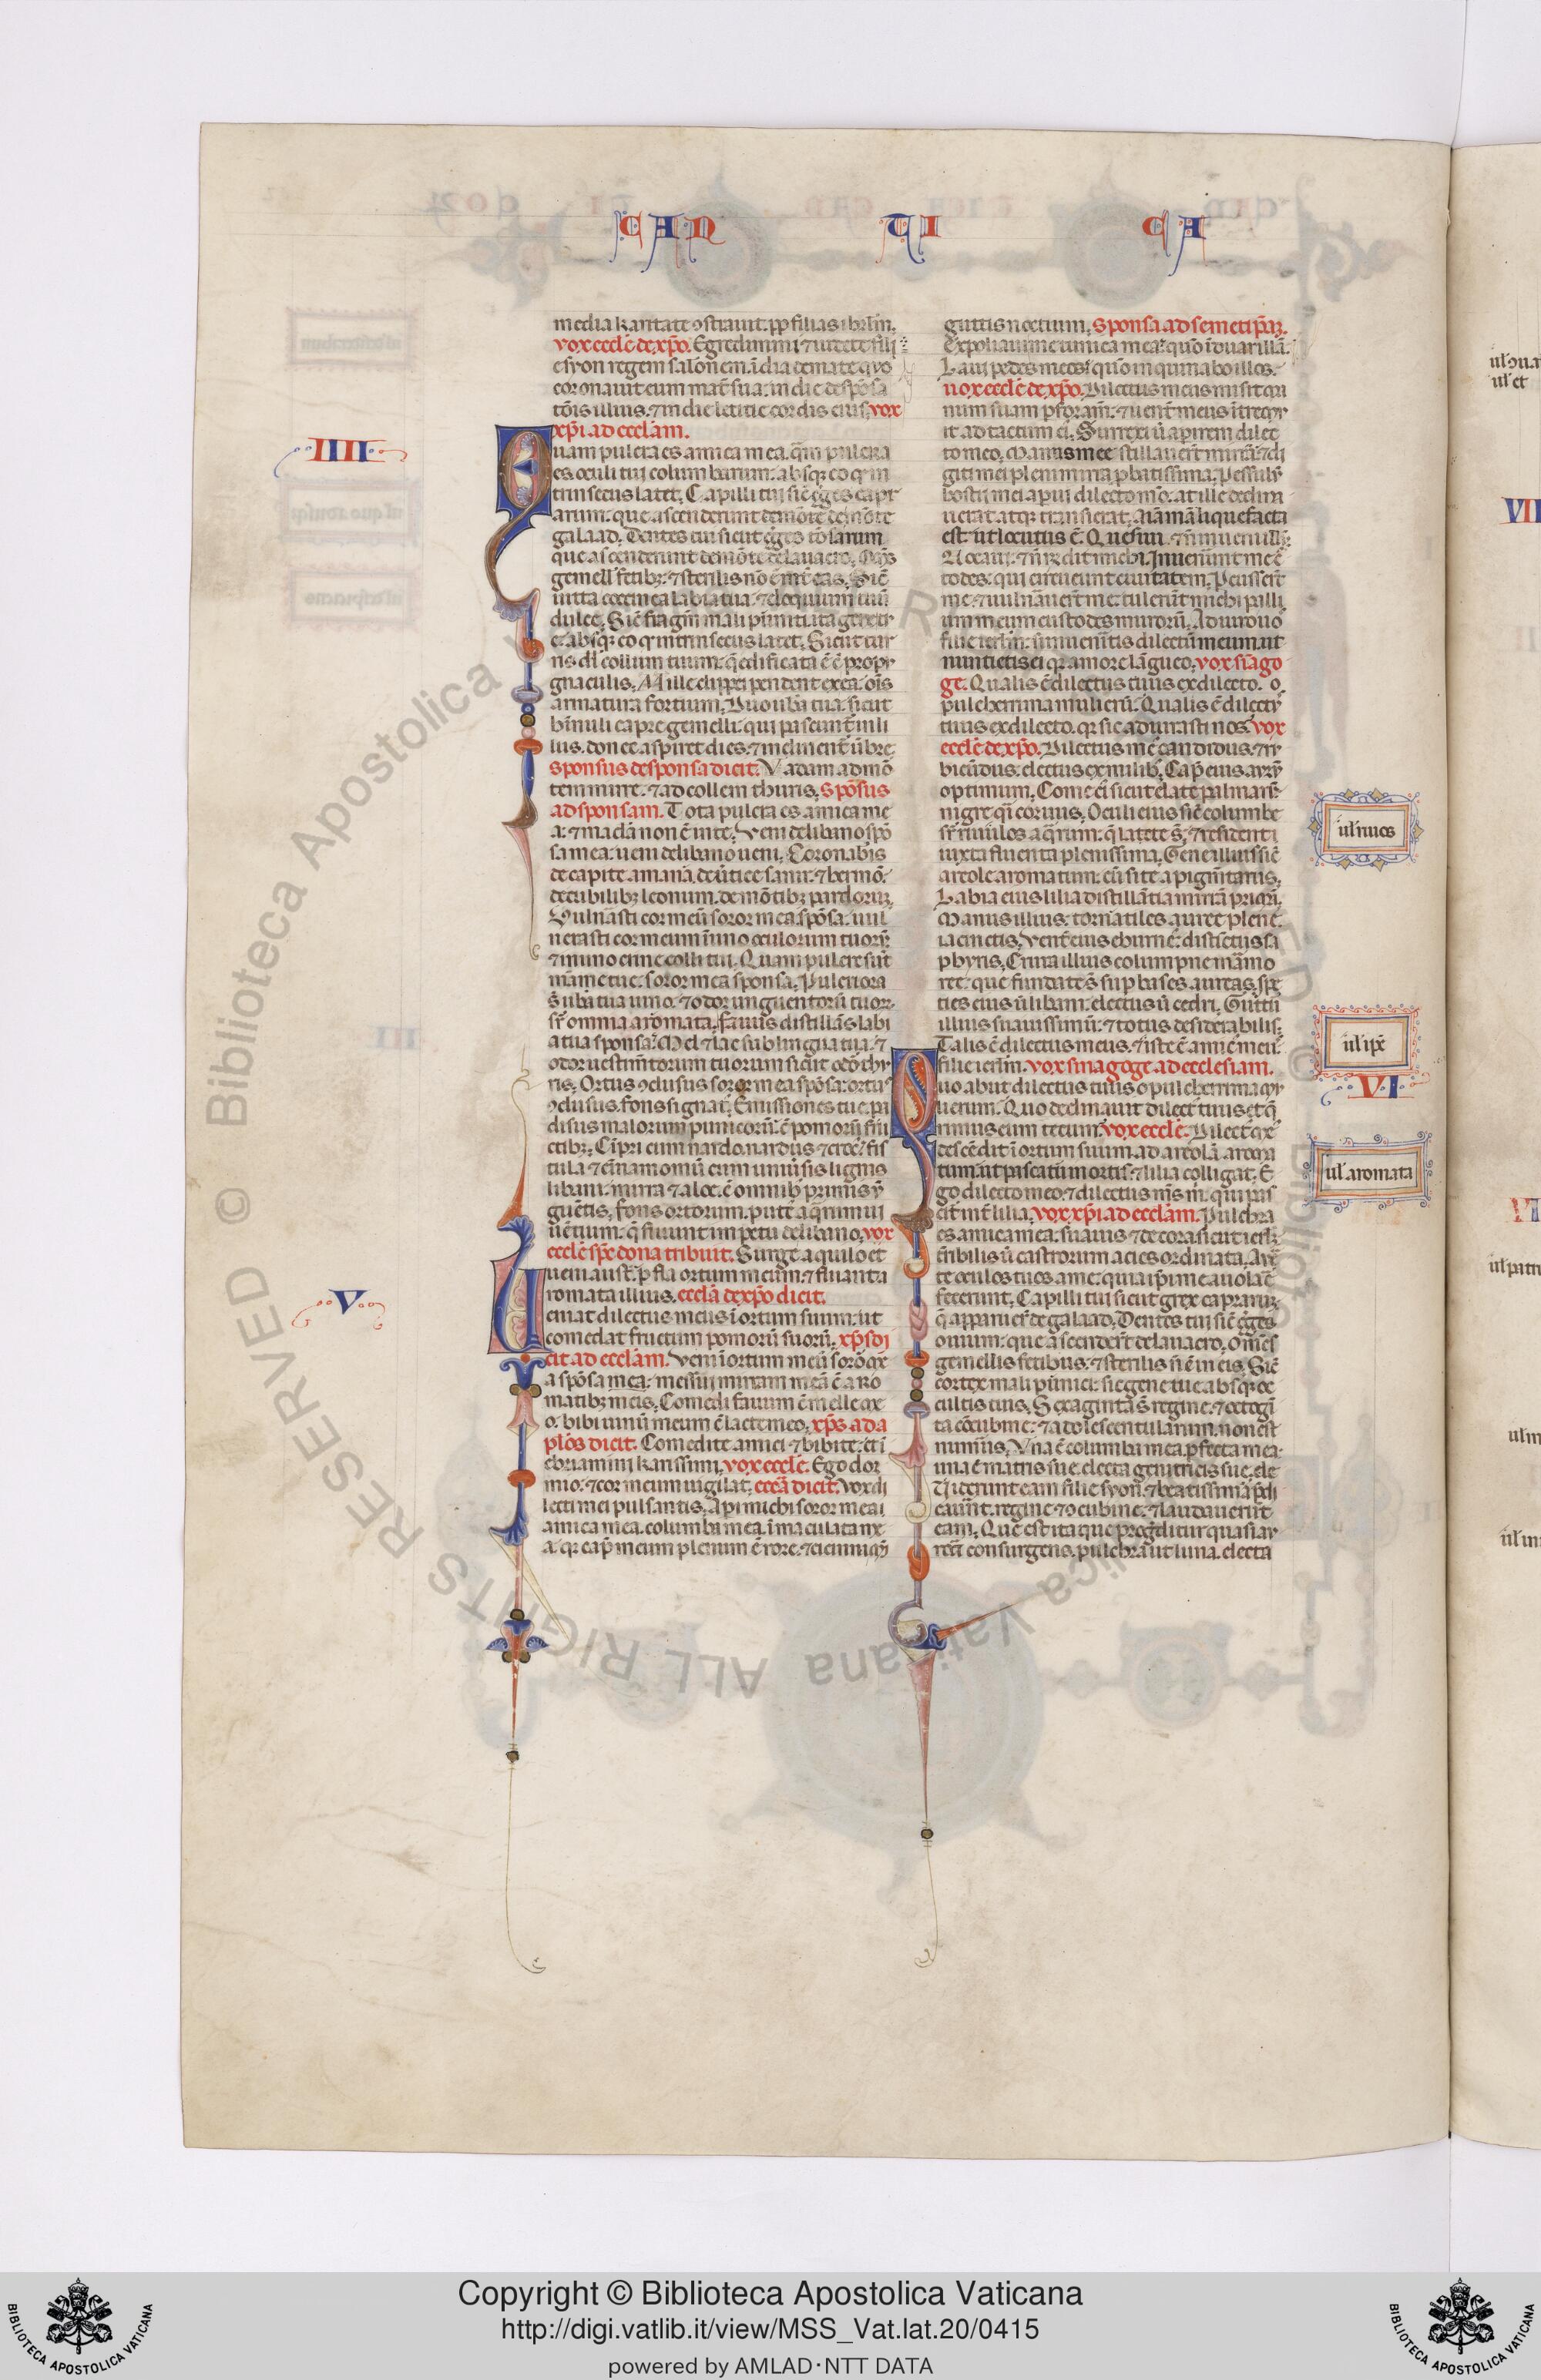 CAN TI CA
media karitate ↄstrauit. pp filias ihrl'm.
vox eccl'e de xp̄o. Egredimini ⁊ uidete filie
syon regem salonem. ī diademate quo
coronauit eum mat̄ sua: in die despōsa
tōis illius. ⁊ in die letitie cordis eius. vox
xp̄i ad eccl'am.
IIII
Quam pulcra es amica mea. q̄m pulcra
es oculi tui columbarum: absq; eo q̄ in
trinsecus latet. Capilli tui sic̄ gges capr
arum: que ascenderunt de mōte de mōte
galaad. Dentes tui sicut gges tōsarum
que ascenderunt de mōte de lauacro. Om̄s
gemell' fetib; ⁊ sterilis nō ē int̄ eas. Sic̄
uitta coccinea labia tua. ⁊ eloquium tuū
dulce. Sic̄ fragm̄ mali punici ita gene tu
e. absq; eo q̄ intrinsecus latet. Sicut tur
ris dd' collum tuum: q̄ edificata ē ē propr
gnaculis. Mille clippei pendent ex ea: oīs
armatura fortium. Duo ub̄a tua. sicut
binuli capre gemelli: qui pascunt̄ in li
liis. donec aspiret dies. ⁊ inclinent̄ ūbre
sponsus de sponsa dicit. Vadam ad mō
tem mirre. ⁊ ad collem thuris. spōsus
ad sponsam. Tota pulcra es amica me
a: ⁊ macla non ē in te. Veni de libano spō
sa mea: ueni de libano ueni. Coronabis
de capite amana. de ūtice sanir. ⁊ hermō.
de cubilib; leonum. de mōtib; pardorum.
Vulnasti cor meū soror mea spōsa: uul
nerasti cor meum in uno oculorum tuor̄.
⁊ in uno crine colli tui. Quam pulcre sūt
māme tue. soror mea sponsa. Pulcriora
s̄ ub̄a tua uino. ⁊ odor unguentorū tuor̄
sr̄ omnia aromata. fauus distillās labi
a tua sponsa: Mel ⁊ lac sub lingua tua. ⁊
odor uestim̄torum tuorum sicut odō thy
ris. Ortus ↄclusus soror mea spōsa: ortu
ↄclusus. fons signat'. Emissiones tue. pa
disus malorum punicorū. ē pomorū fru
ctib;. Cipri cum nardo. nardus ⁊ croc'. fis
tula ⁊ cinamomū cum uniūsis lignis
libani. mirra ⁊ aloe. ē omnib; primis ū
guētis. fons ortorum. pute' aq̄rum ui
uētium: q̄ fluunt impetu de libano. vox
eccl'e spe dona tribuit. Surge aquilo et
ueni aust̄. p fla ortum meum. ⁊ fluant a
romata illius. eccl'a de xp̄o dicit.
V
Veniat dilectus meus ī ortum suum: ut
comedat fructum pomorū suorū. xp̄s di
cit ad eccl'am. Veni ī ortum meū sorō me
a spōsa mea: messui mirram meā ē aro
matib; meis. Comedi fauum ē melle me
o: bibi uinū meum ē lacte meo. xp̄s ad a
plōs dicit. Comedite amici ⁊ bibite: et i
ebriamini karissimi. vox eccl'e. Ego dor
mio: ⁊ cor meum uigilat. eccl'a dicit. Vox di
lecti mei pulsantis. Aperi michi soror mea
amica mea. columba mea. īmaculata me
a: q̄ cap̄ meum plenum ē rore. ⁊ cicinni m̄
guttis noctium. sponsa ad semetip̄am.
Expoliaui me tunica mea: quō īduar illā.
Laui pedes meos: quō inquinabo illos.
uox eccl'e de xp̄o. Dilectus meus misit ma
num suam p foram̄. ⁊ uent̄ meus ītremu
it ad tactum ei'. Surrexi ū aperirem dilec
to meo. Manus mee stillauerūt mirrā. ⁊ di
giti mei pleni mirra pbatissima. Pessulū
hostii mei apui dilecto mō: at ille declina
uerat. atq; transierat. Aīa mā liquefacta
est: ut locutus ē. Quesiui. ⁊ n̄ inueni illū
Uocaui. ⁊ n̄ rn̄dit michi. Inuenerūt me cu
stodes: qui circueunt ciuitatem. Pcusserūt
me. ⁊ uulnauerūt me: tulerūt michi palli
um meum custodes murorū. Adiuro uo
s filie ierl'm: si inueneritis dilectū meum. ut
nuntietis ei q̄ amore lāgueo. vox sinago
ge. Qualis ē dilectus tuus ex dilecto. o
pulcherrima mulierū. Qualis ē dilect'
tuus ex dilecto. q̄ sic adiurasti nos. vox
eccl'e de xp̄o. Dilectus m̄s cādidus. ⁊ ru
bicūdus: electus ex milib;. Cap̄ eius aurū
optimum. Come ei' sicut elate palmarū
nigre q̄i coruus. Oculi eius sic̄ columbe
sr̄ riuulos aq̄rum: q̄ lacte s̄. ⁊ resident i
iuxta fluenta plenissima. Gene illius sic̄
areole aromatum: c̄ site a pigm̄tariis.
Labia eius lilia distillātia mirrā primā.
Manus illius: tornatiles auree plene
iacinctis. Vent̄ eius eburne': distīctus sa
phyris. Crura illius columpne mārmo
ree: que fundate s̄ sup bases aureas. spe
ties eius ū libani: electus ū cedri. Guttū
illius suauissimū: ⁊ totus desiderabilis.
Talis ē dilectus meus. ⁊ iste ē amic' meu'
filie ierl'm. vox sinagoge ad ecclesiam.
VI
Quo abiit dilectus tuus o pulcherrima mu
lierum: Quo declinauit dilect' tuus: et q̄
rimus eum tecum. vox eccl'e. Dilect' me'
descēdit ī ortum suum. ad areolā aroma
tum. ut pascatur in ortis: ⁊ lilia colligat. E
go dilecto meo. ⁊ dilectus m̄s m̄. qui pas
cit̄ int̄ lilia. vox xp̄i ad eccl'am. Pulchra
es amica mea: suauis ⁊ decora sicut ierl'm
t̄ribilis ū castrorum acies ordinata. Au̅
te oculos tuos a me: quia ip̄i me auola'e
fecerunt. Capilli tui sicut grex caprarum
q̄ apparuer̄ de galaad. Dentes tui sic̄ gges
ouium: que ascenderūt de lauacro. Omēs
gemellis fetibus: ⁊ sterilis n̄ ē in eis. Sic̄
cortex mali punici: sic gene tue absq; oc
cultis tuis. Sexaginta s̄ regine. ⁊ octogī
ta cōcubine: ⁊ adolescentularum. non est
num̄us. Vna ē columba mea. pfecta mea:
una ē matris sue. electa genitricis sue. Ui
derunt eam filie syon. ⁊ beatissimā pdi
cauer̄t. regine ⁊ ↄcubine: ⁊ laudauerūt
eam. Que est ista que progreditur quasi au
rora consurgens. pulchra ut luna. electa
ul' riuos
ul' ipse
ul' aromata
VII
Copyright © Biblioteca Apostolica Vaticana
http://digi.vatlib.it/view/MSS_Vat.lat.20/0415
powered by AMLAD·NTT DATA
BIBLIOTECA APOSTOLICA VATICANA
BIBLIOTECA APOSTOLICA VATICANA